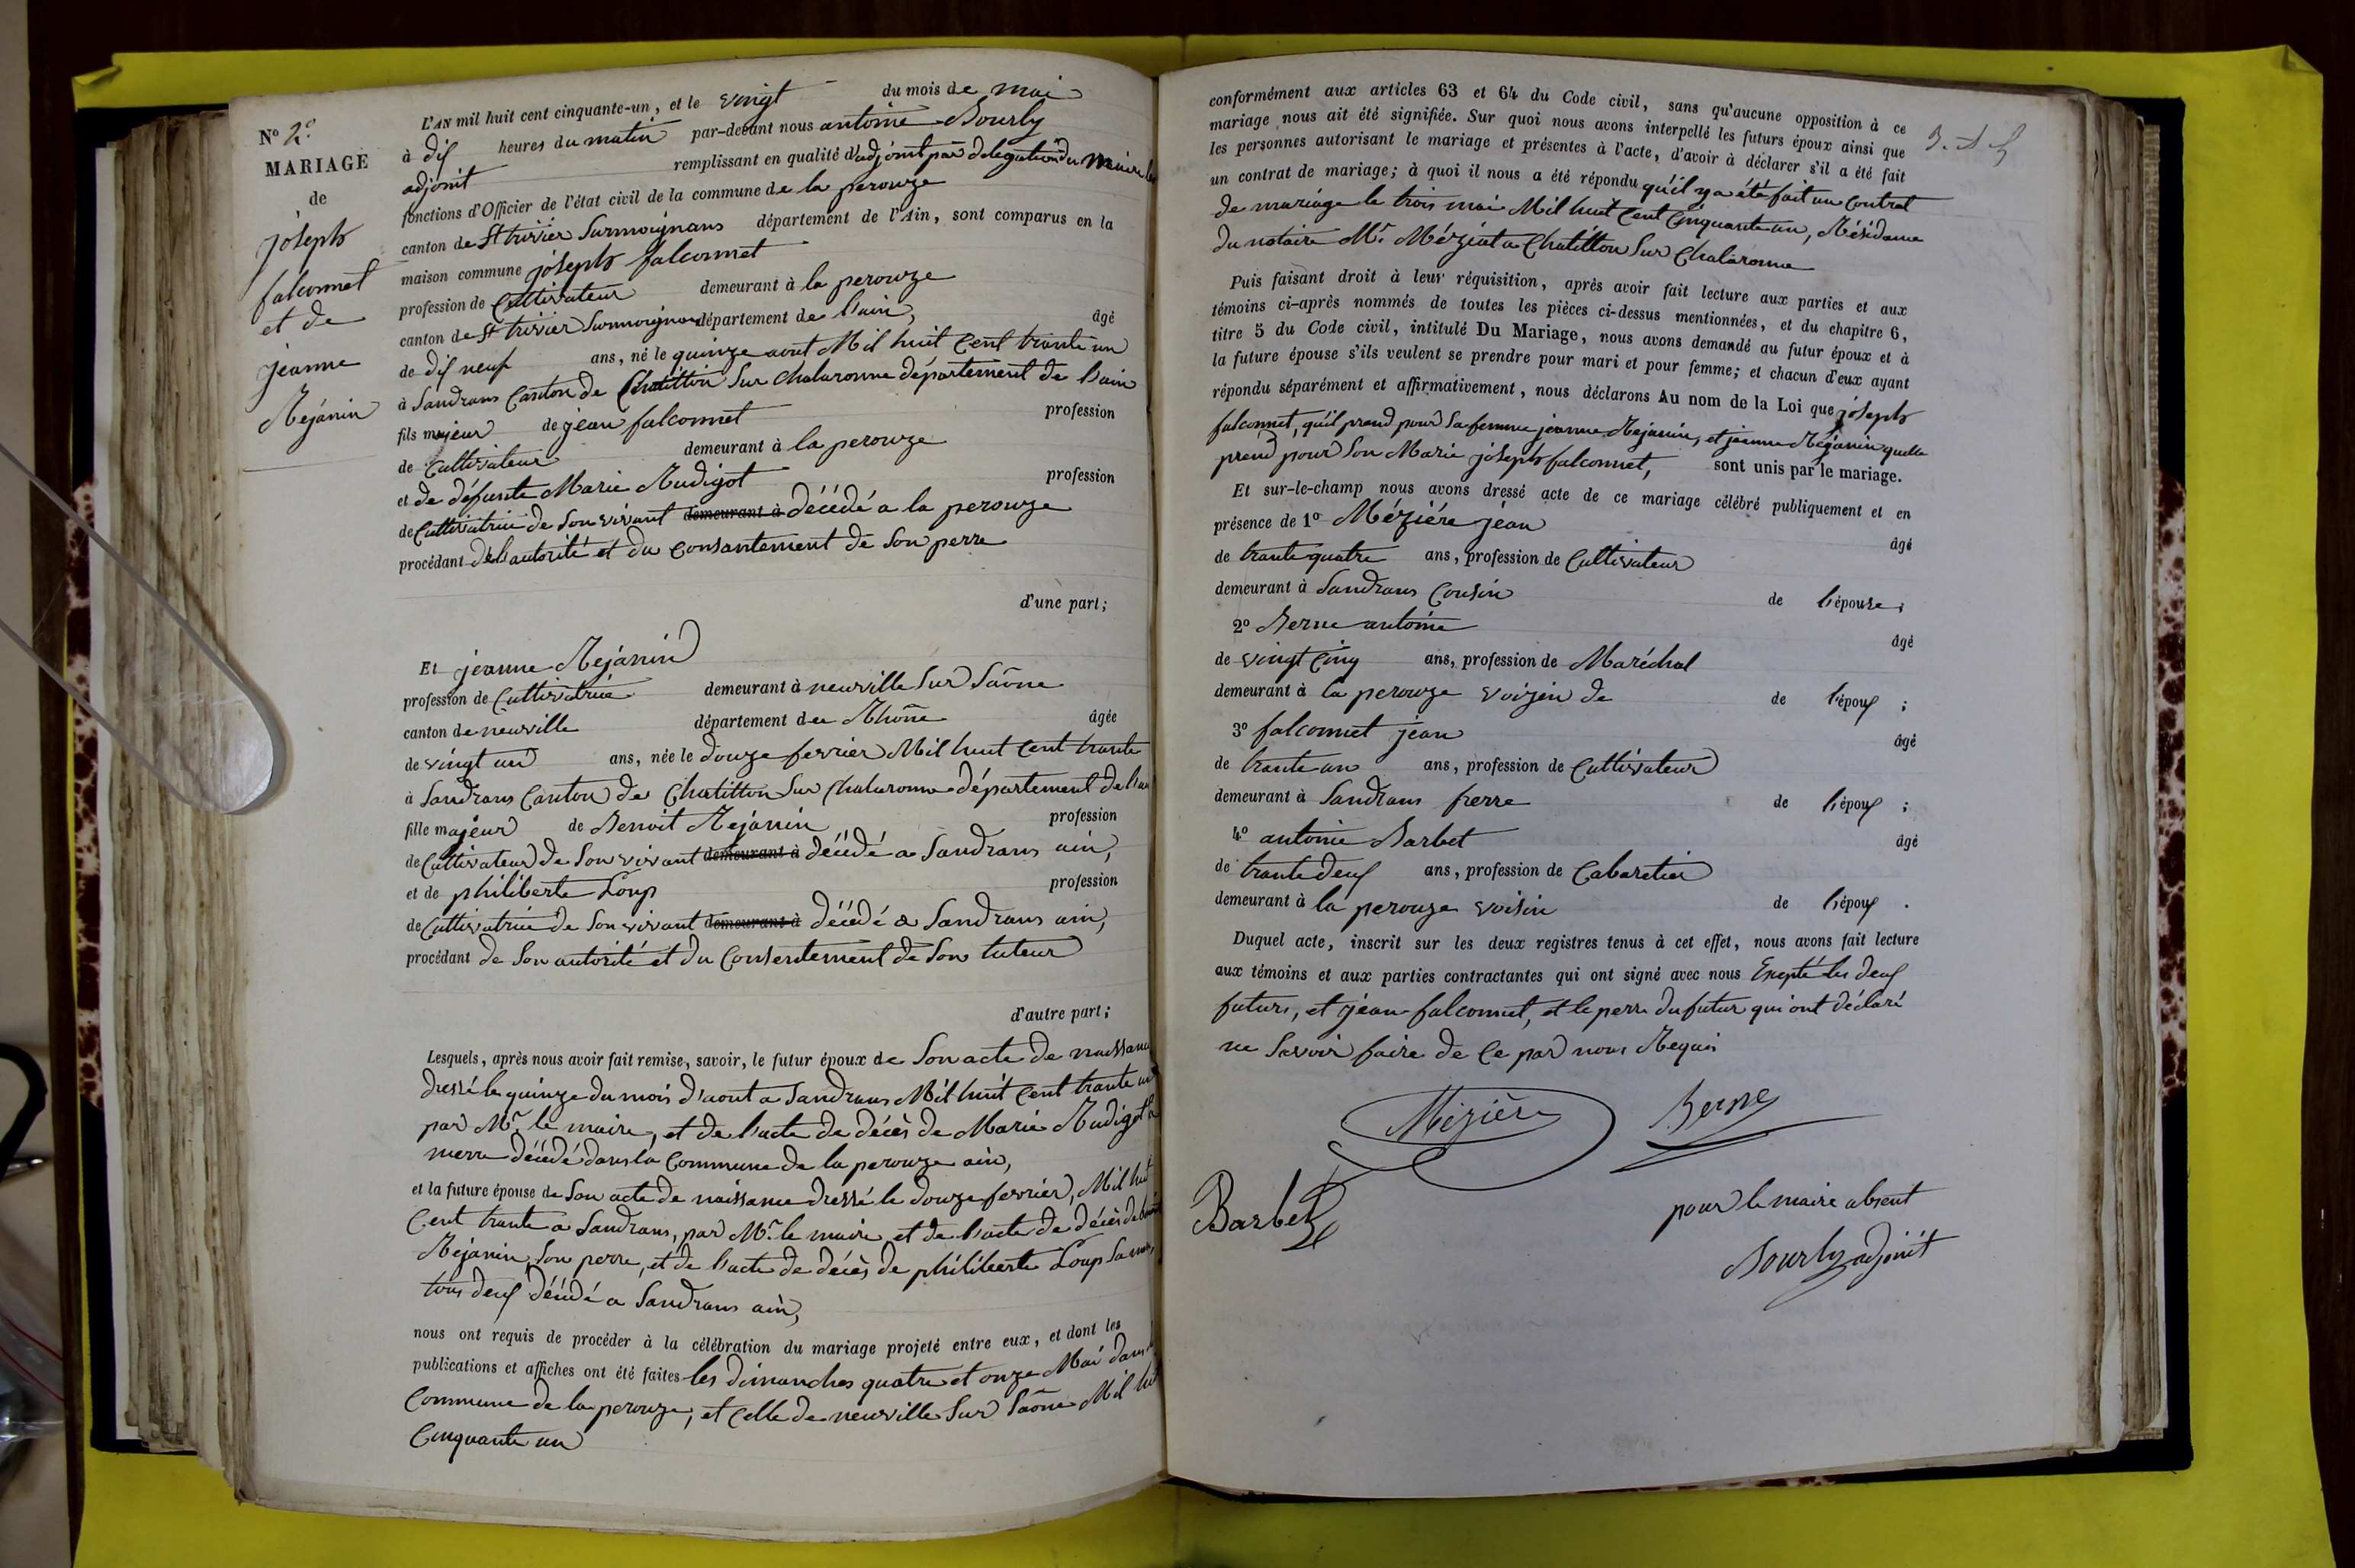 N° 2e
MARIAGE
de
joseph
falconnet
et de
jeanne
Rejanin
L'AN mil huit cent cinquante-un, et le vingt du mois de mai
à dix heures du matin par-devant nous antoine Bourly
adjoint remplissant en qualité d'adjoint par délégation du Maire les
fonctions d'Officier de l'état civil de la commune de la perouze
canton de St trivier Surmoignans département de l'Ain, sont comparus en la
maison commune joseph falconnet
profession de Cultivateur demeurant à la perouze
canton de St trivier Surmoignans département de l'ain, âgé
de dix neuf ans, né le quinze aout Mil huit Cent trante un
à Sandrans Canton de Chatillon Sur Chalaronne département de l'ain
fils majeur de jean falconnet profession
de Cultivateur demeurant à la perouze
et de défunte Marie Rudigot profession
de Cultivatrice de Son vivant demeurant à décédé a la perouze
procédant de l'autorité et du Consantement de Son perre
d'une part;
Et jeanne Rejanin
profession de Cultivatrice demeurant à neuville Sur Saône
canton de neuville département du Rhône âgée
de vingt un ans, née le douze fevrier Mil huit Cent trante
à Sandrans Canton de Chatillon Sur Chalaronne département de l'ain
fille majeur de Benoit Rejanin profession
de Cultivateur de Son vivant demeurant à décédé a Sandrans ain,
et de philiberte Loup profession
de Cultivatrice de Son vivant demeurant à décédé a Sandrans ain,
procédant de Son autorité et du Consentement de Son tuteur
d'autre part;
Lesquels, après nous avoir fait remise, savoir, le futur époux de Son acte de naissance
dressé le quinze du mois d'aout a Sandrans Mil huit Cent trante un
par Mr. le maire, et de l'acte de décès de Marie Rudigot Sa
merre décédé dans la Commune de la perouze ain,
et la future épouse de Son acte de naissance dressé le douze fevrier, Mil huit
Cent trante a Sandrans, par Mr. le maire, et de l'acte de décès de benoit
Rejanin, Son perre, et de l'acte de décès de philiberte Loup Sa merre,
tous deux décédé a Sandrans ain,
nous ont requis de procéder à la célébration du mariage projeté entre eux, et dont les
publications et affiches ont été faites les dimanches quatre et onze Mai dans la
Commune de la perouze, et Celle de neuville Sur Saône Mil huit
Cinquante un
conformément aux articles 63 et 64 du Code civil, sans qu'aucune opposition à ce
mariage nous ait été signifiée. Sur quoi nous avons interpellé les futurs époux ainsi que
les personnes autorisant le mariage et présentes à l'acte, d'avoir à déclarer s'il a été fait
un contrat de mariage; à quoi il nous a été répondu qu'il y a été fait un Contrat
de mariage le trois mai Mil huit Cent Cinquante un, Résidance
du notaire Mr. Méziat a Chatillon Sur Chalaronne
Puis faisant droit à leur réquisition, après avoir fait lecture aux parties et aux
témoins ci-après nommés de toutes les pièces ci-dessus mentionnées, et du chapitre 6,
titre 5 du Code civil, intitulé Du Mariage, nous avons demandé au futur époux et à
la future épouse s'ils veulent se prendre pour mari et pour femme; et chacun d'eux ayant
répondu séparément et affirmativement, nous déclarons Au nom de la Loi que joseph
falconnet, qu'il prend pour Sa femme jeanne Rejanin, et jeanne Rejanin quelle
prend pour Son Marie joseph falconnet, sont unis par le mariage.
Et sur-le-champ nous avons dressé acte de ce mariage célébré publiquement et en
présence de 1° Méziére jéan âgé
de trante quatre ans, profession de Cultivateur
demeurant à Sandrans Cousin de l'épouse;
2° Berne antoine âgé
de vingt Cinq ans, profession de Maréchal
demeurant à la perouze voizin de de l'époux;
3° falconnet jean âgé
de trante un ans, profession de Cultivateur
demeurant à Sandrans frerre de l'époux;
4° antoine Barbet âgé
de trante deux ans, profession de Cabaretier
demeurant à la perouze voisin de l'époux.
Duquel acte, inscrit sur les deux registres tenus à cet effet, nous avons fait lecture
aux témoins et aux parties contractantes qui ont signé avec nous Exepté les deux
futurs, et jean falconnet, et le perre du futur qui ont déclaré
ne Savoir faire de Ce par nous Requis
Mézière Berne
Barbet
pour le maire absent
Bourly adjoint